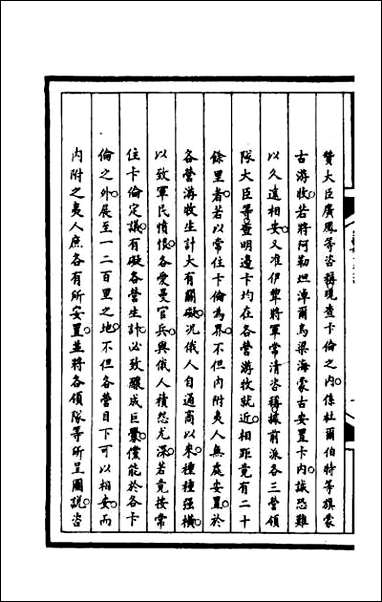 贊大臣廣鳳等咨稱現查卡倫之内係杜爾伯特等旗蒙
古游收若將阿勒坦淖爾烏梁海蒙古安置卡内誠恐難
以久遠相安又准伊犂將軍常清咨稱據前派各三營領
隊大臣等查明邊卡均在各營游牧就近相距竟有二十
餘里者若以常住卡倫為界不但内附夷人無處安置於
各營游牧生計大有關礙况俄人自通商以來種種强橫
以致軍民憤恨各愛曼官兵與俄人積怨尤深若竟按常
住卡倫定議有礙各營生計必致釀成巨釁儻能於各卡
倫之外展至一二百里之地不但各營目下可以相安而
内附之夷人庶各有所安置並將各領隊等所呈圖説咨